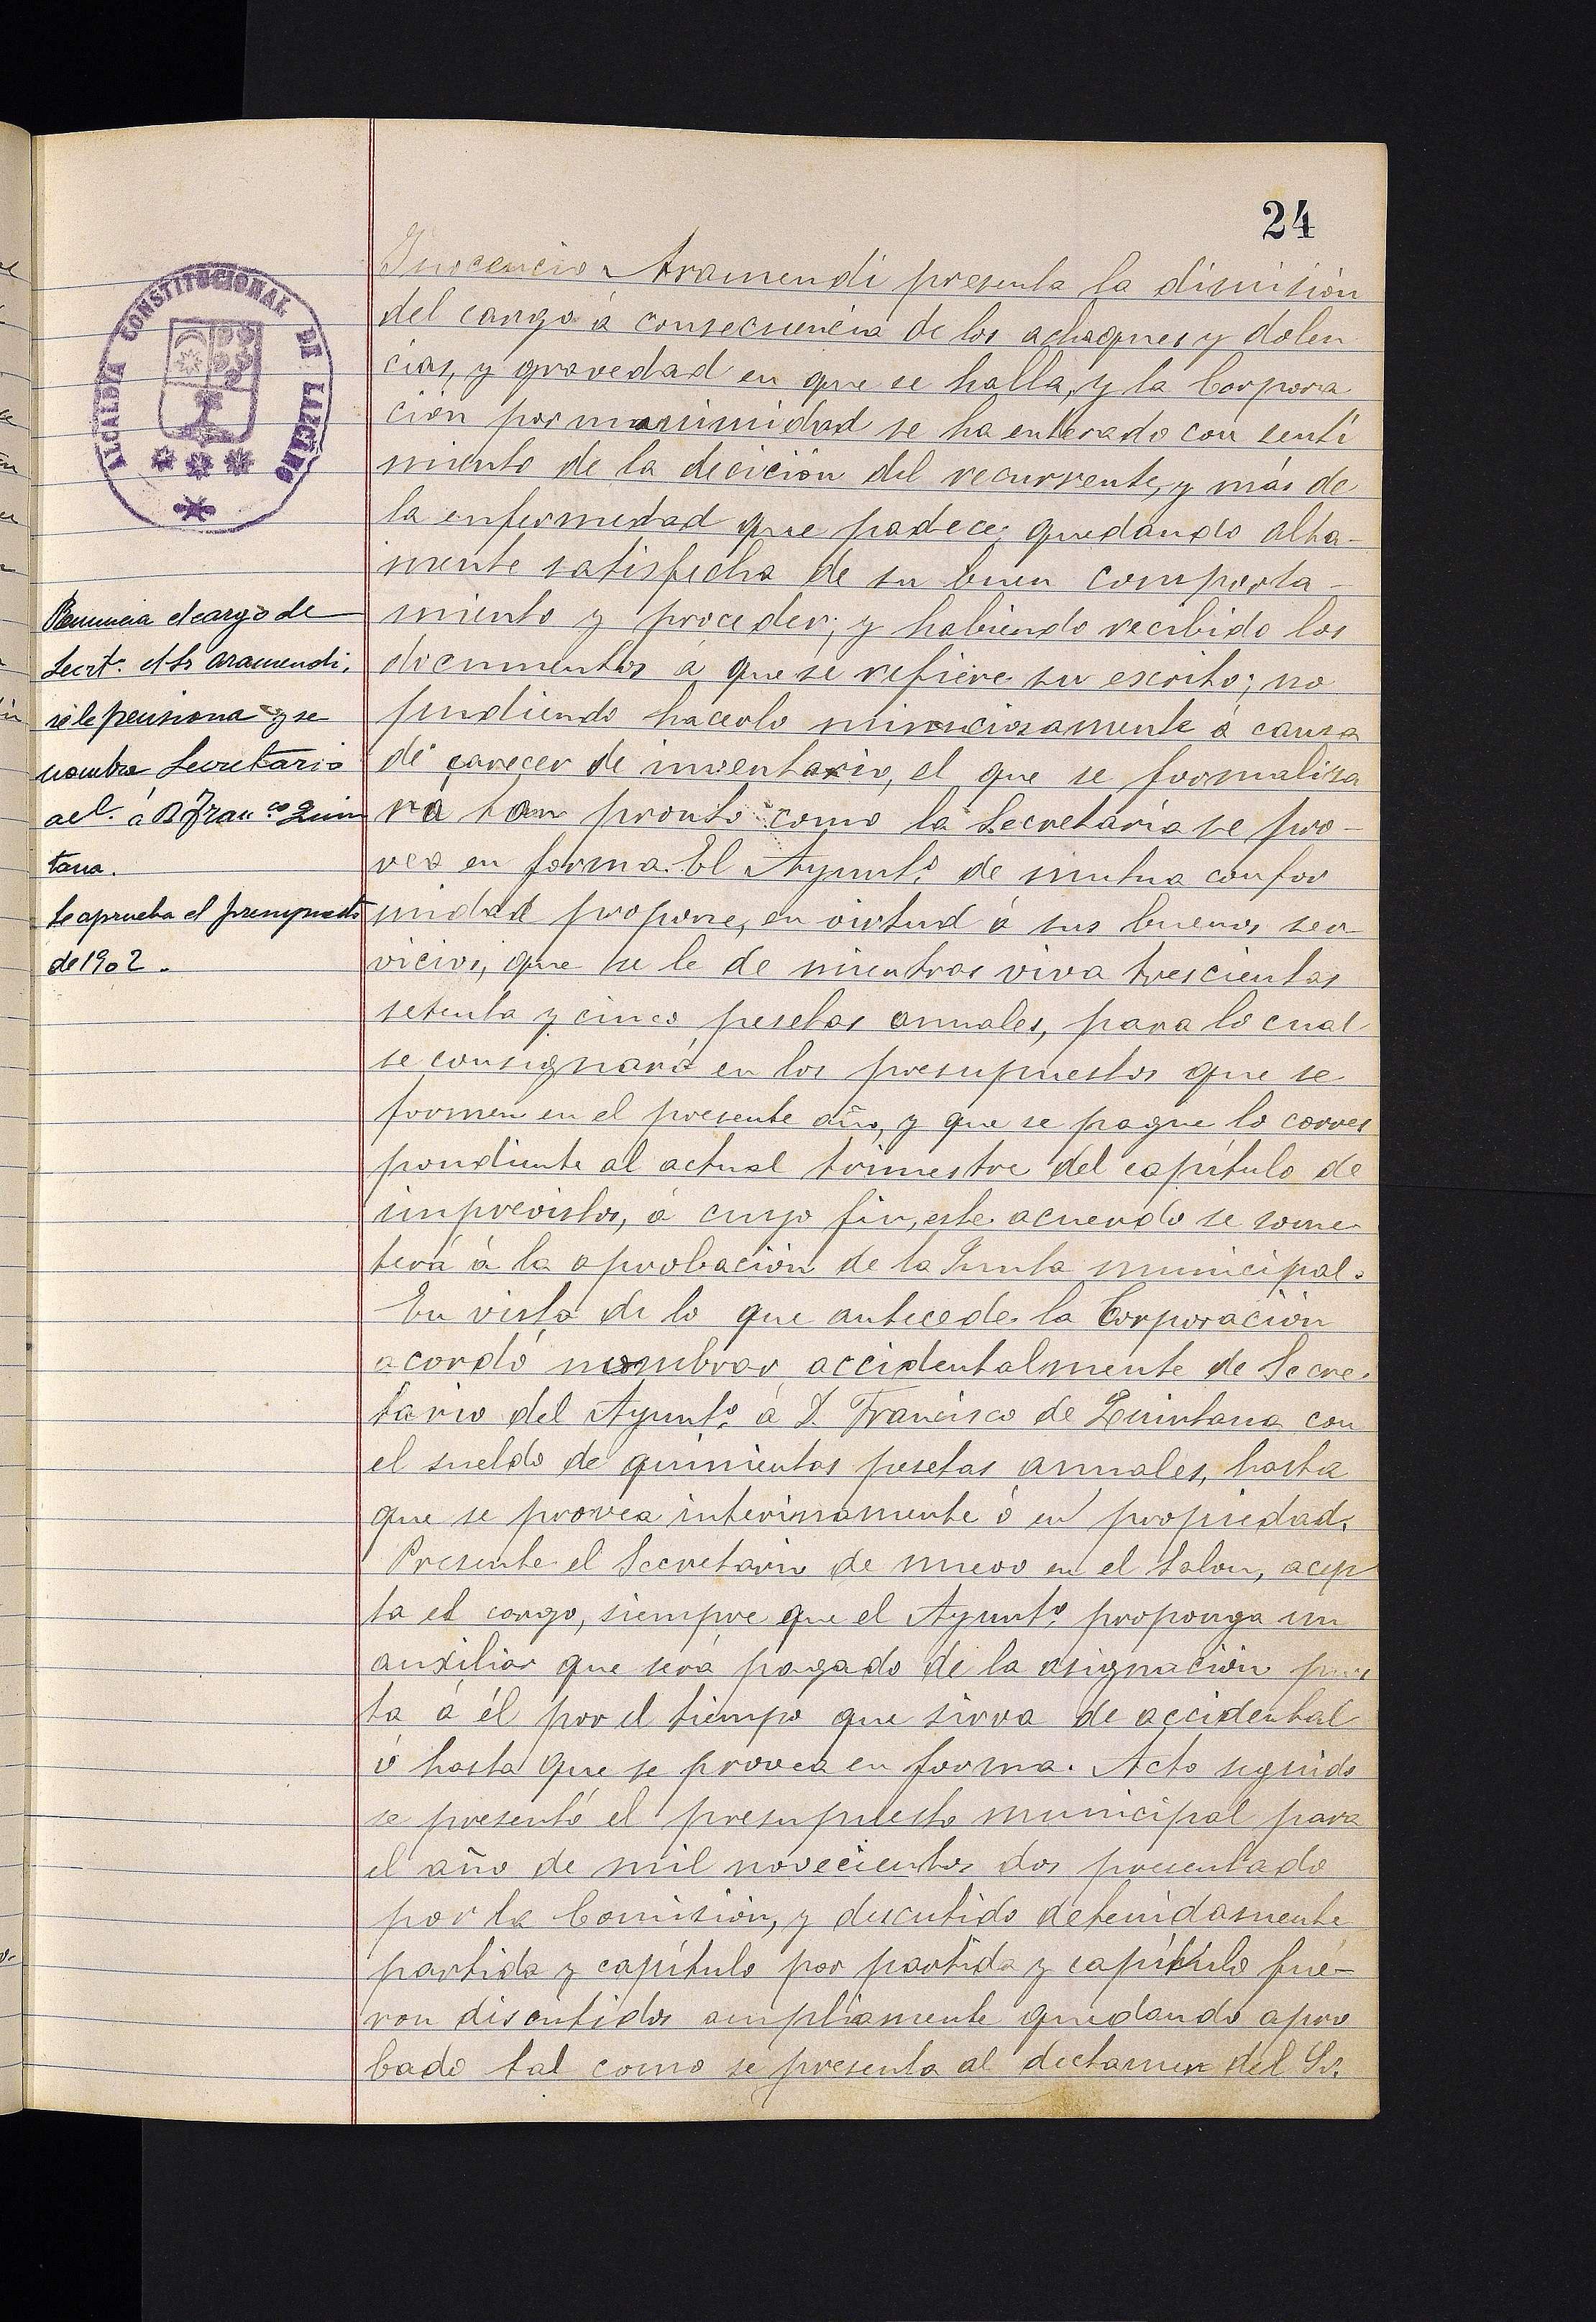 24
ALCALDIA CONSTITUCIONAL DE LANCIEGO
Renuncia el cargo de
Secrt.º el Sr Aramendi,
se le pensiona y se
nombra Secretario
acl. á D Fran.co Quin
tana.
Se aprueba el presupuesto
de 1902.
Inocencio Aramendi presenta la dimisión
del cargo á consecuencia de los achaques y dolen
cias, y gravedad en que se halla, y la Corpora
ción por unanimidad se ha enterado con senti
miento de la decición del recurrente, y más de
la enfermedad que padece; quedando alta-
mente satisfecha de su buen comporta-
miento y proceder; y habiendo recibido los
documentos á que se refiere su escrito; no
pudiendo hacerlo minuciosamente á causa
de carecer de inventario, el que se formaliza
rá tan pronto como la Secretaría se pro-
vea en forma. El Ayunt.º de mutua confor
midad propone, en virtud á sus buenos ser
vicios, que se le de mientras viva trescientas
setenta y cinco pesetas anuales, para lo cual
se consignará en los presupuestos que se
formen en el presente año, y que se pague lo corres
pondiente al actual trimestre del capítulo de
imprevistos, á cuyo fin, este acuerdo se some
terá á la aprobación de la Junta municipal.
En vista de lo que antecede la Corporación
acordó nombrar accidentalmente de Secre.
tario del Ayunt.º á D. Francisco de Quintana con
el sueldo de quinientas pesetas anuales, hasta
que se provea interinamente ó en propiedad.
Presente el Secretario de nuevo en el salon, acep
ta el cargo, siempre que el Ayunt.º proponga un
auxiliar que será pagado de la asignación pues
ta á él por el tiempo que sirva de accidental
ó hasta que se provea en forma. Acto seguido
se presentó el presupuesto municipal para
el año de mil novecientos dos presentado
por la Comisión, y discutido detenidamente
partida y capítulo por partida y capítulo fué-
ron discutidos ampliamente quedando apro
bado tal como se presenta al dictamen del Sr.